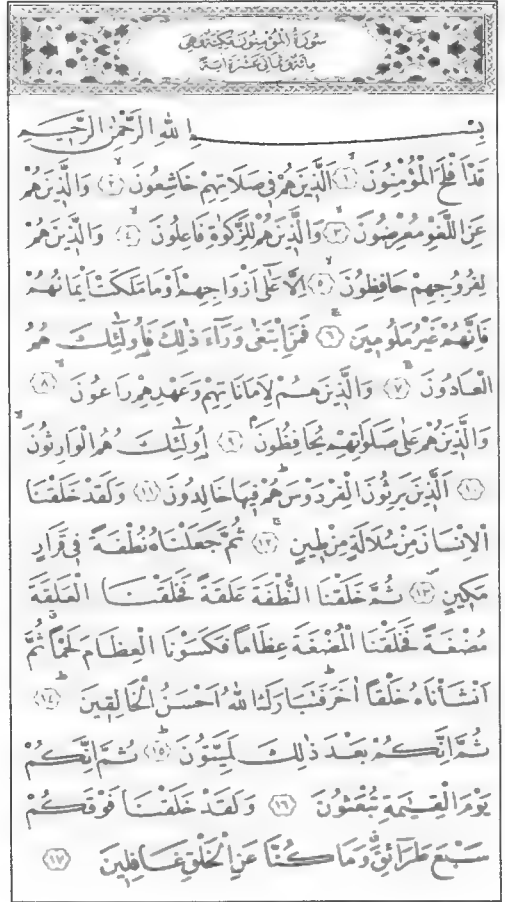 سُورَةُ الْمُؤْمِنُونَ مَكِّيَّةٌ وَهِيَ
مِائَةٌ وَثَمَانِيَ عَشْرَةَ اٰيَةً
بِسْمِ اللّٰهِ الرَّحْمٰنِ الرَّحِيمِ
قَدْ اَفْلَحَ الْمُؤْمِنُونَ ﴿١﴾ اَلَّذِينَ هُمْ فِي صَلَاتِهِمْ خَاشِعُونَ ﴿٢﴾ وَالَّذِينَ هُمْ
عَنِ اللَّغْوِ مُعْرِضُونَ ﴿٣﴾ وَالَّذِينَ هُمْ لِلزَّكٰوةِ فَاعِلُونَ ﴿٤﴾ وَالَّذِينَ هُمْ
لِفُرُوجِهِمْ حَافِظُونَ ﴿٥﴾ اِلَّا عَلٰٓى اَزْوَاجِهِمْ اَوْ مَا مَلَكَتْ اَيْمَانُهُمْ
فَاِنَّهُمْ غَيْرُ مَلُومِينَ ﴿٦﴾ فَمَنِ ابْتَغٰى وَرَٓاءَ ذٰلِكَ فَاُولٰٓئِكَ هُمُ
الْعَادُونَ ﴿٧﴾ وَالَّذِينَ هُمْ لِاَمَانَاتِهِمْ وَعَهْدِهِمْ رَاعُونَ ﴿٨﴾
وَالَّذِينَ هُمْ عَلٰى صَلَوَاتِهِمْ يُحَافِظُونَ ﴿٩﴾ اُولٰٓئِكَ هُمُ الْوَارِثُونَ
﴿١٠﴾ اَلَّذِينَ يَرِثُونَ الْفِرْدَوْسَ هُمْ فِيهَا خَالِدُونَ ﴿١١﴾ وَلَقَدْ خَلَقْنَا
الْاِنْسَانَ مِنْ سُلَالَةٍ مِنْ طِينٍ ﴿١٢﴾ ثُمَّ جَعَلْنَاهُ نُطْفَةً فِي قَرَارٍ
مَكِينٍ ﴿١٣﴾ ثُمَّ خَلَقْنَا النُّطْفَةَ عَلَقَةً فَخَلَقْنَا الْعَلَقَةَ
مُضْغَةً فَخَلَقْنَا الْمُضْغَةَ عِظَاماً فَكَسَوْنَا الْعِظَامَ لَحْماً ثُمَّ
اَنْشَاْنَاهُ خَلْقاً اٰخَرَ فَتَبَارَكَ اللّٰهُ اَحْسَنُ الْخَالِقِينَ ﴿١٤﴾
ثُمَّ اِنَّكُمْ بَعْدَ ذٰلِكَ لَمَيِّتُونَ ﴿١٥﴾ ثُمَّ اِنَّكُمْ
يَوْمَ الْقِيٰمَةِ تُبْعَثُونَ ﴿١٦﴾ وَلَقَدْ خَلَقْنَا فَوْقَكُمْ
سَبْعَ طَرَٓائِقَ وَمَا كُنَّا عَنِ الْخَلْقِ غَافِلِينَ ﴿١٧﴾